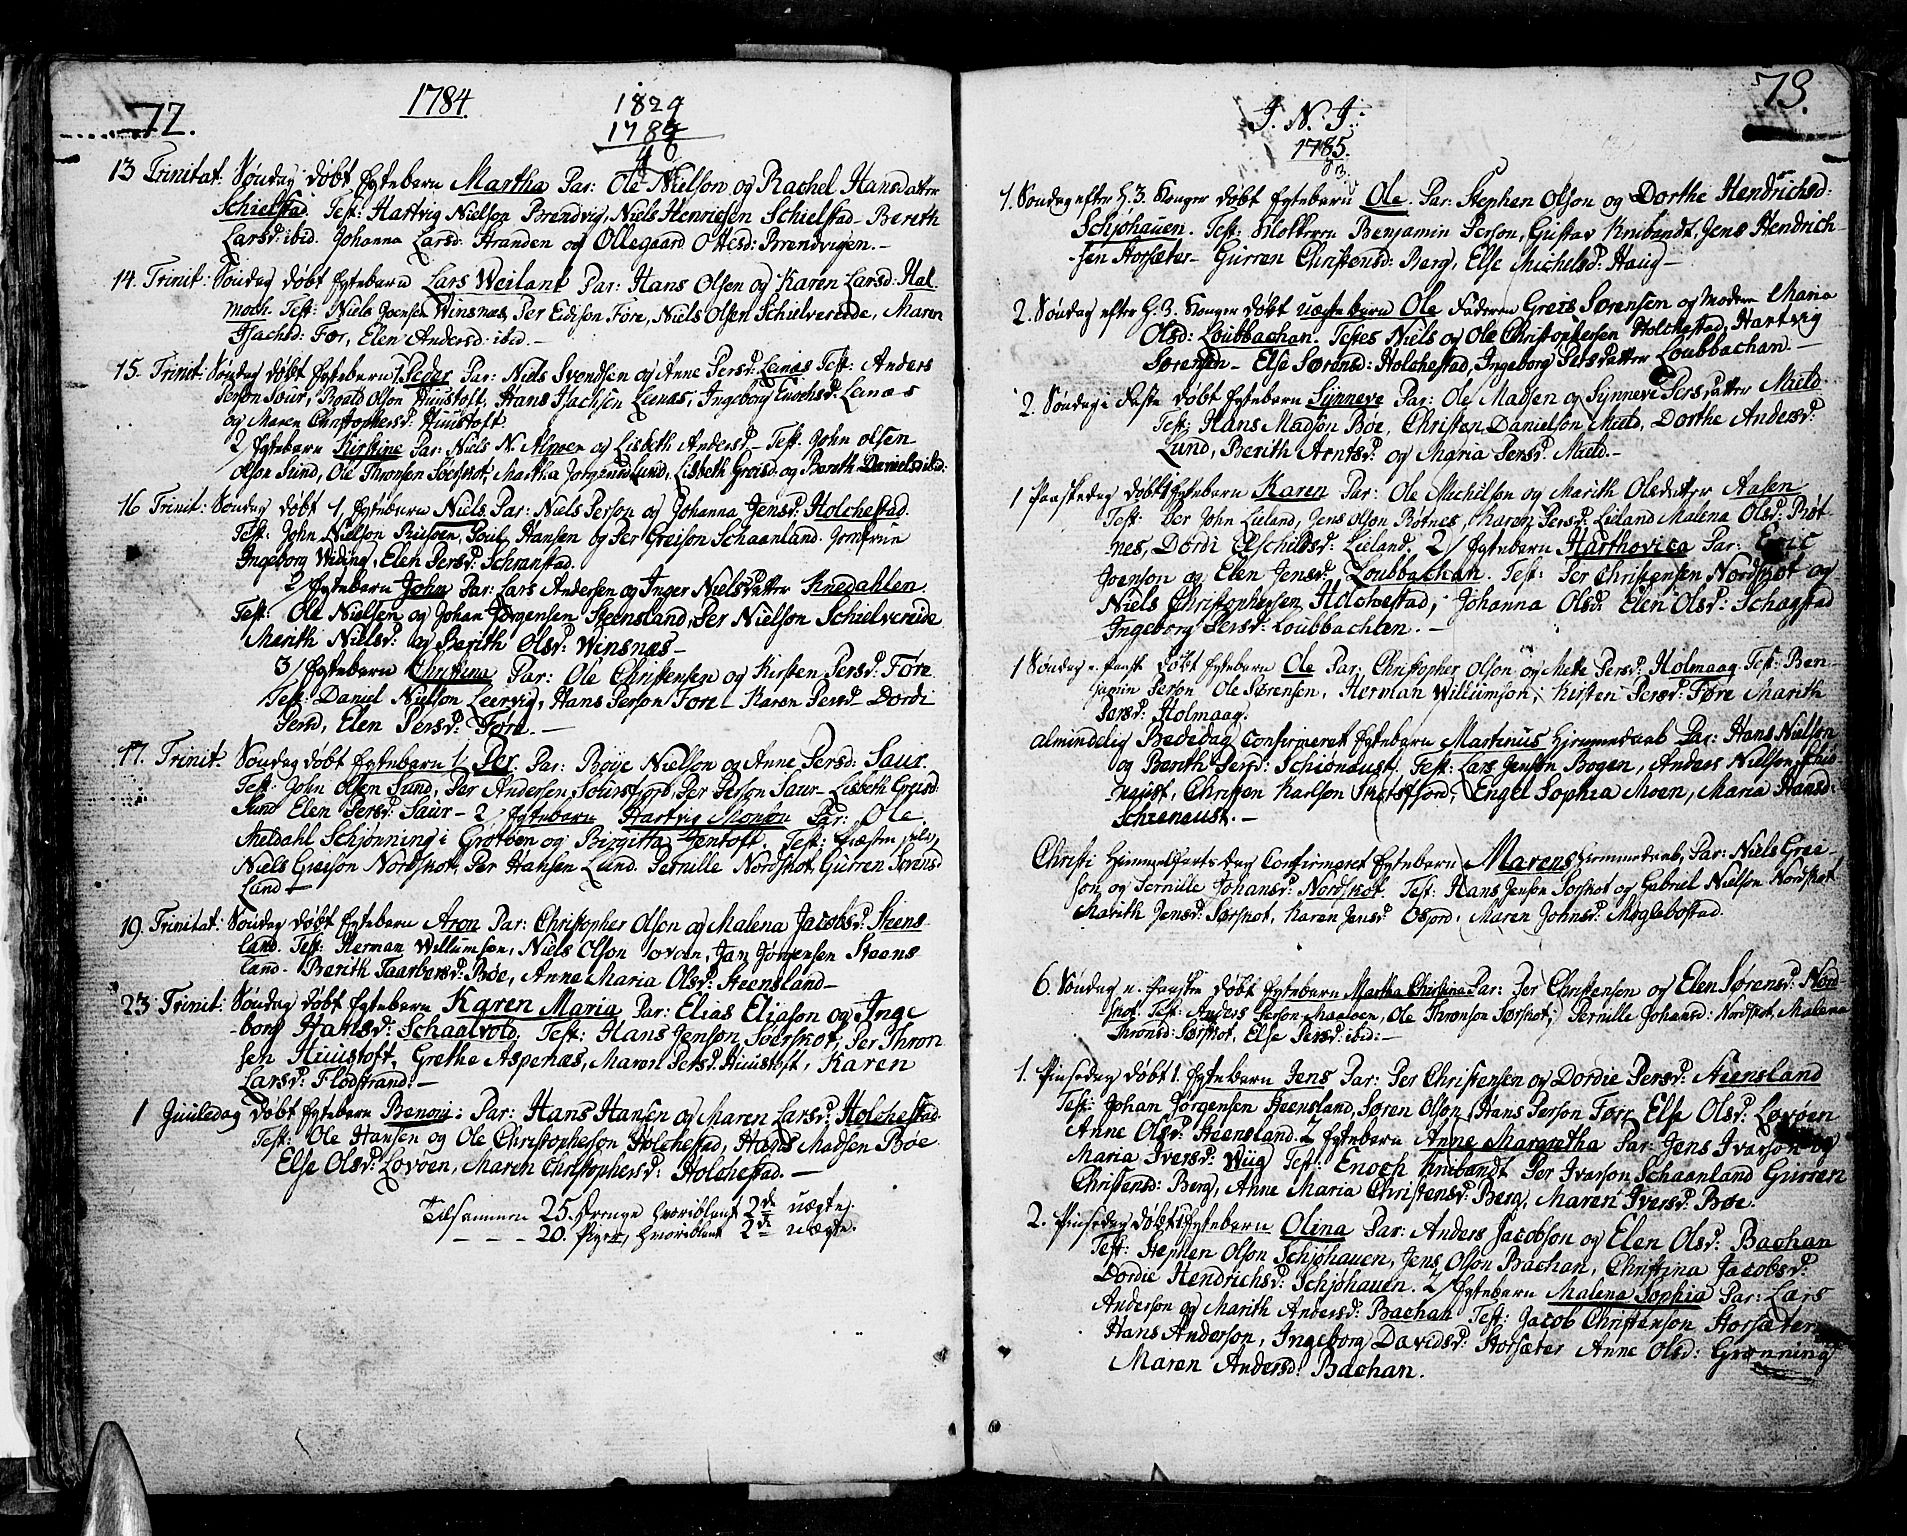 72.
1784
1829
1784
40
13 Trinitat: Søndag døbt Ægtebarn Martha Par: Ole Nielson og Rachel Hansdatter
Schielstad. Test: Hartvig Nielson Brendvig, Niels Henricsen Schielstad - Bereth
Larsd: ibid. Johanna Larsd: Stranden og Ollegaard Ottesd: Brendvigen. -
14. Trinit: Søndag døbt Ægtebarn Lars Weilant Par: Hans Olsen og Karen Larsd: Hal-
moch. Test: Niels Joensen Winsnæs, Per Edison Føre, Niels Olsen Schielvereide, Maren
Isachsd: Før, Elen Andersd: ibid. -
15. Trinit: Søndag døbt Ægtebarn 1, Peder Par: Niels Svendsen og Anne Persd: Lenæs Test: Anders
Person Saur, Roald Olson Huustoft, Hans Isachsen Lenæs, Ingeborg Enochsd: Lenæs
og Maren Christophersd: Huustoft
2 Ægtebarn Kirstine Par: Niels N. og Lisbeth Andersd - Test: John Olsen
Olson Sund, Ole Thronsen Sørskot, Martha Lund, Lisbeth Greisd: og Bereth Danielsd ibid:
16 Trinit: Søndag døbt 1, Ægtebarn Niels Par: Niels Person og Johanna Jensd: Holchestad.
Test: John Nielson Prisøen, Poul Hansen og Per Greison Schaanland. Jomfrue
Ingeborg Widing, Elen Persd: Schranstad.
2/ Ægtebarn John Par: Lars Andersen og Inger Nielsdatter Knedahlen.
Test: Ole Nielsen og Johan Jørgensen Steensland, Per Nielson Schielvereide
Marith Nielsd: og Berith Olsd: Winsnæs -
3/ Ægtebarn Christina Par: Ole Christensen og Kirsten Persd: Føre
Test: Daniel Nielson Leervig, Hans Person Føre - Karen Persd - Dordi
Persd, Elen Persd: Føre. -
17. Trinit Søndag døbt Ægtebarn 1/ Per. Par: Bøye Nielson og Anne Persd: Saur.
Test: John Olsen Sund, Par Andersen Schirsfjord, Per Person Saur - Lisbeth Greisd:
Sund Elen Persd: Saur - 2/ Ægtebarn Hartvig Monsen Par: Ole
Meldahl Schjønning i Grotøen og Birgitta Jentoft. Test: Præsten,
Niels Greison Nordskot, Per Hansen Lund. Pernille Nordskot, Gurren Sørensd
Lund -
19. Trinitat: Søndag døbt Ægtebarn Aron Par: Christopher Olson og Malena Jacobsd: Steens-
land. Test: Herman Willumsøn, Niels Olson Lovøen, Jan Jørgensen Steens
land. Berith Taarbersd: Bøe, Anne Maria Olsd: Steensland -
23 Trinit: Søndag døbt Ægtebarn Karen Maria Par: Elias Eliason og Inge
borg Hansd: Schaalvold. Test: Hans Jenson Søerskot, Per Thron
sen Huustoft, Grethe Aspenæs, Maren Persd. Huustoft, Karen
Larsd: Flodstrand: -
1 Juuledag døbt Ægtebarn Benoni: Par: Hans Hansen og Maren Larsd: Holchestad.
Test: Ole Hansen og Ole Christopherson Holchestad, Hans Madsen Bøe.
Else Olsd: Løvøen, Maren Christophersd: Holchestad. -
Tilsammen 25. Drenge hvoriblant 2de uægte.
- - - 20. Piger, hvoriblant 2de uægte.
73.
I. N. J:
1785.
1. Søndag efter H. 3. Konger døbt Ægtebarn Ole. Par: Stephen Olson og Dorthe Hendrichsd:
Schjøhauen. Test: Klokkeren Benjamin Person, Gustav Knibandt, Jens Hendrich-
sen Horsæter - Gurren Christensd: Berg, Else Michelsd: Haug -
2. Søndag efter H. 3. Konger døbt uægtebarn Ole Faderen Greis Sørensen og Moderen Maria
Olsd: Loubbachan. Testes Niels og Ole Christophersen Holchestad, Hartvig
Sørensen - Else Sørensd: Holchestad, Ingeborg Persdatter Loubbachan. -
2. Søndag i Faste døbt Ægtebarn Synneve Par: Ole Madsen og Synneve Persdatter Mield.
Test: Hans Madson Bøe, Christen Danielson Mield, Dorthe Andersd:
Lund, Berith Arntsd: og Maria Persd. Mield. -
1 Paaskedag døbt 1 Ægtebarn Karen Par: Ole Michilson og Marith Olsdatter Aasen
Test: Per John Lieland, Jens Olson Bøtnes, Karen Persd: Lieland Malena Olsd: Bøt-
nes, Dordi Elschildsd: Lieland. 2/ Ægtebarn Harthovica Par: Eric
Joenson og Elen Jensd: Loubbachan. Test: Per Christensen Nordskot og
Niels Christophersen Holchestad, Johanna Olsd: Elen Olsd: Schagstad
Ingeborg Persd: Loubbachten. -
1 Søndag e. Paaske døbt Ægtebarn Ole Par: Christopher Olson og Mette Persd: Holmaag. Test: Ben-
jamin Person Ole Sørensen, Herman Willumson, Kirsten Persd: Føre Marith
Persd: Holmaag.
Almindelig Bededag Confirmeret Ægtebarn Martinus hiemmedaab Par: Hans Nielson
og Berith Persd: Schionaust. Test: Lars Jenson Bogen, Anders Nielson Schio
naust, Christen Karlson, Engel Sophia Moen, Maria Hansd:
Schienaust. -
Christi Himmelfarts Dag Confirmeret Ægtebarn Marens hiemmedaab, Par: Niels Grei-
son og Pernille Johansd: Nordskot. Test: Hans Jensen Sørskot og Gabriel Nielson Nordskot
Marith Jensd: Sørskot, Karen Jensd Osjord, Maren Johnsd: Møglebostad.
6. Søndag e. Paaske døbt Ægtebarn Martha Christina Par: Per Christenson og Elen Sørensd: Nord
skot Test: Anders Person Maaløen, Ole Thronson Sørskot, Pernille Johansd: Nordskot, Malena
Thronsd: Sørskot, Else Persd: ibid: -
1. Pinsedag døbt 1. Ægtebarn Jens Par: Per Christensen og Dordie Persd: Steensland
Test: Johan Jørgensen Steensland, Søren Olson, Hans Person Føre, Else Olsd: Lovøen
Anne Olsd: Steensland. 2 Ægtebarn Anne Margretha Par: Jens Ivarson og
Maria Iversd: Wiig Test: Enoch Knibandt Per Ivarson Schaanland Gurren
Christensd: Berg, Anne Maria Christensd: Berg, Maren Iversd: Bøe.
2. Pinsedag døbt 1 Ægtebarn Olina Par: Anders Jacobson og Elen Olsd: Bachan
Test: Stephen Olson Schjøhauen, Jens Olson Bachan, Christina Jacobsd:
Dordie Hendrichsd: Schjøhauen. 2/ Ægtebarn Malena Sophia Par: Lars
Anderson og Marith Andersd: Bachan Test: Jacob Christenson Horsæter
Hans Anderson, Ingeborg Davidsd: Horsæter Anne Olsd: Grønning
Maren Andersd: Bachan.